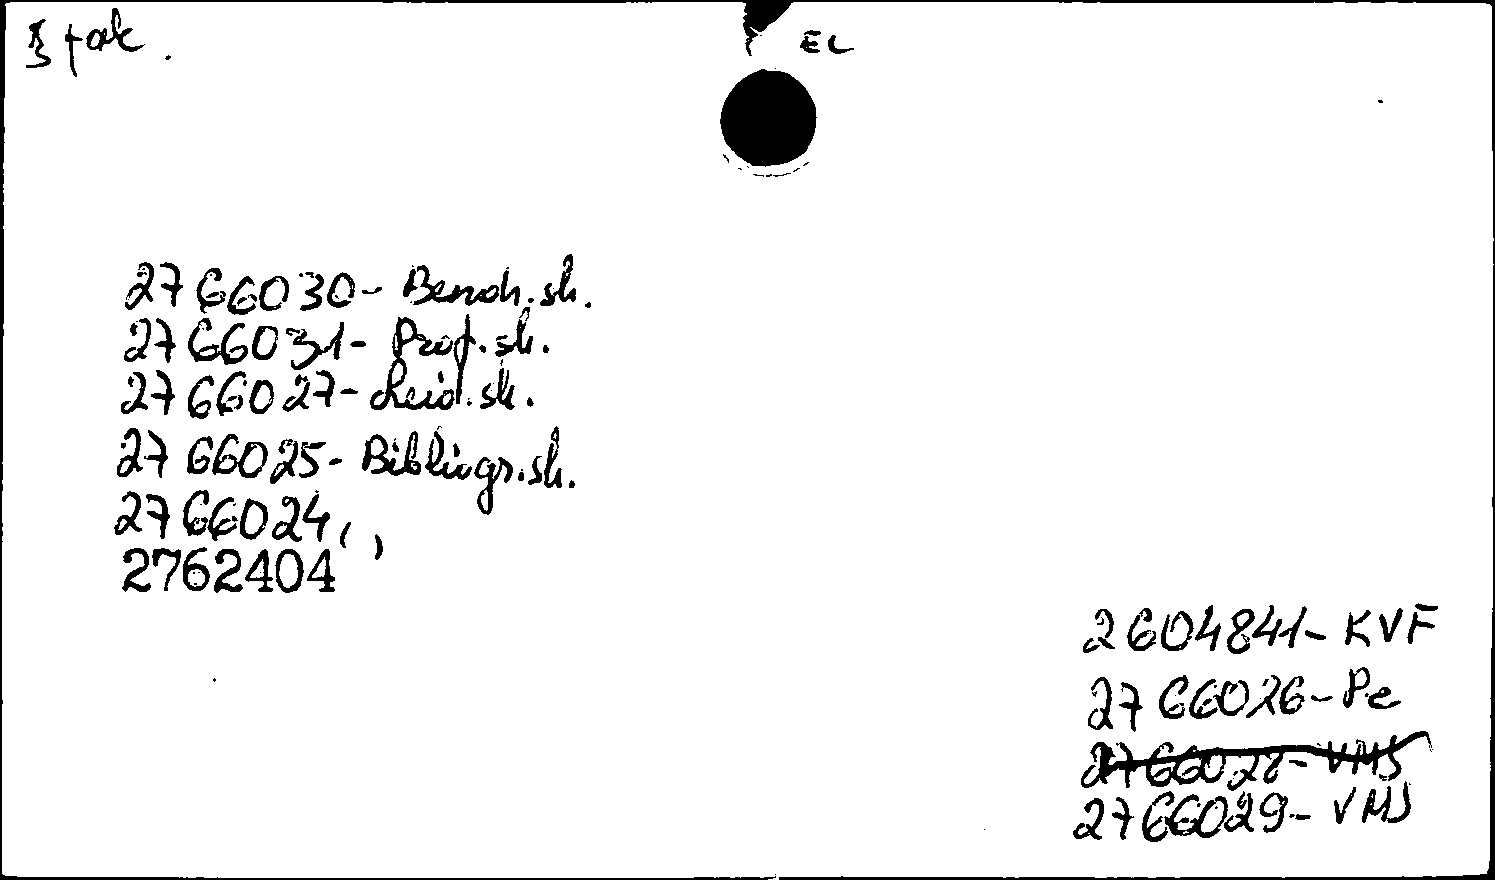 EL
2766030- Bendr.sk.
2766031- Prof.sk.
2766027- Leid.sk.
2766025- Bibliogr.sk.
2766024,
2762404
2604841- KVF
2766026- Pe
2766028- VMS
2766029- VMS